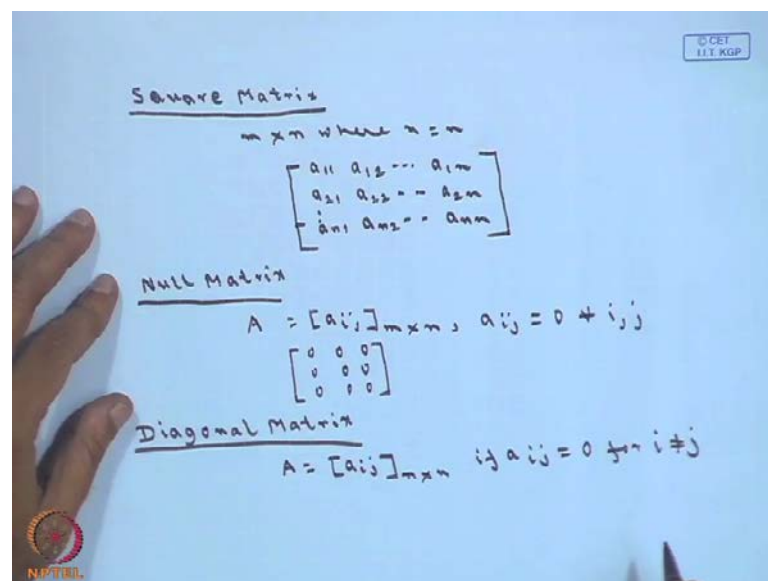 © CET
I.I.T. KGP
Square Matrix
m × n where m = n
a11 a12 --- a1n
a21 a22 -- a2n
an1 an2 -- ann
Null Matrix
A = [aij]m×n, aij = 0 ∀ i,j
0 0 0
0 0 0
0 0 0
Diagonal Matrix
A = [aij]m×n if aij = 0 for i ≠ j
NPTEL